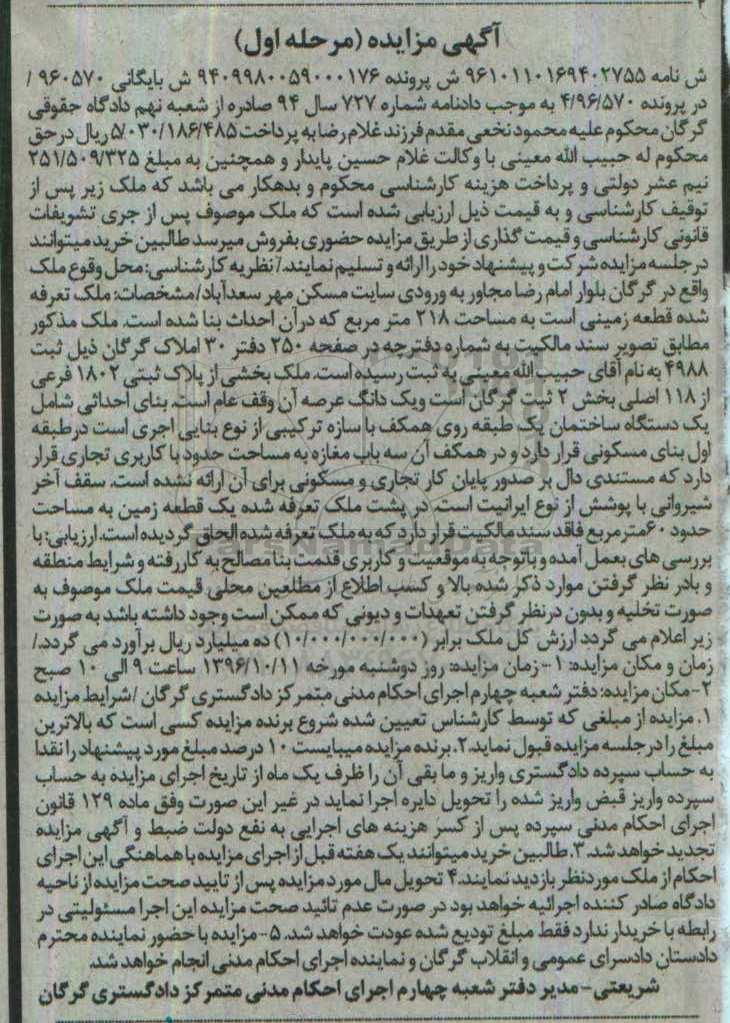 آگهی مزایده (مرحله اول)
ش نامه ۹۶۱۰۱۱۰۱۶۹۴۰۲۷۵۵ ش پرونده ۹۴۰۹۹۸۰۰۵۹۰۰۰۱۷۶ ش بایگانی ۹۶۰۵۷۰ /
در پرونده ۴/۹۶/۵۷۰ به موجب دادنامه شماره ۷۲۷ سال ۹۴ صادره از شعبه نهم دادگاه حقوقی
گرگان محکوم علیه محمود نخعی مقدم فرزند غلام رضا به پرداخت ۵/۰۳۰/۱۸۶/۴۸۵ ریال در حق
محکوم له حبیب الله معینی با وکالت غلام حسین پایدار و همچنین به مبلغ ۲۵۱/۵۰۹/۳۲۵
نیم عشر دولتی و پرداخت هزینه کارشناسی محکوم و بدهکار می باشد که ملک زیر پس از
توقیف کارشناسی و به قیمت ذیل ارزیابی شده است که ملک موصوف پس از جری تشریفات
قانونی کارشناسی و قیمت گذاری از طریق مزایده حضوری بفروش میرسد طالبین خرید میتوانند
در جلسه مزایده شرکت و پیشنهاد خود را ارائه و تسلیم نمایند./ نظریه کارشناسی: محل وقوع ملک
واقع در گرگان بلوار امام رضا مجاور به ورودی سایت مسکن مهر سعدآباد/مشخصات: ملک تعرفه
شده قطعه زمینی است به مساحت ۲۱۸ متر مربع که درآن احداث بنا شده است. ملک مذکور
مطابق تصویر سند مالکیت به شماره دفترچه در صفحه ۲۵۰ دفتر ۳۰ املاک گرگان ذیل ثبت
۴۹۸۸ به نام آقای حبیب الله معینی به ثبت رسیده است. ملک بخشی از پلاک ثبتی ۱۸۰۲ فرعی
از ۱۱۸ اصلی بخش ۲ ثبت گرگان است ویک دانگ عرصه آن وقف عام است. بنای احداثی شامل
یک دستگاه ساختمان یک طبقه روی همکف با سازه ترکیبی از نوع بنایی اجری است درطبقه
اول بنای مسکونی قرار دارد و در همکف آن سه باب مغازه به مساحت حدود با کاربری تجاری قرار
دارد که مستندی دال بر صدور پایان کار تجاری و مسکونی برای آن ارائه نشده است. سقف آخر
شیروانی با پوشش از نوع ایرانیت است. در پشت ملک تعرفه شده یک قطعه زمین به مساحت
حدود ۶۰متر مربع فاقد سند مالکیت قرار دارد که به ملک تعرفه شده الحاق گردیده است. ارزیابی: با
بررسی های بعمل آمده و باتوجه به موقعیت و کاربری قدمت بنا مصالح به کار رفته و شرایط منطقه
و بادر نظر گرفتن موارد ذکر شده بالا و کسب اطلاع از مطلعین محلی قیمت ملک موصوف به
صورت تخلیه و بدون درنظر گرفتن تعهدات و دیونی که ممکن است وجود داشته باشد به صورت
زیر اعلام می گردد ارزش کل ملک برابر (۱۰/۰۰۰/۰۰۰/۰۰۰) ده میلیارد ریال برآورد می گردد./
زمان و مکان مزایده: ۱- زمان مزایده: روز دوشنبه مورخه ۱۳۹۶/۱۰/۱۱ ساعت ۹ الی ۱۰ صبح
۲- مکان مزایده: دفتر شعبه چهارم اجرای احکام مدنی متمرکز دادگستری گرگان /شرایط مزایده
۱. مزایده از مبلغی که توسط کارشناس تعیین شده شروع برنده مزایده کسی است که بالاترین
مبلغ را درجلسه مزایده قبول نماید.۲. برنده مزایده میبایست ۱۰ درصد مبلغ مورد پیشنهاد را نقدا
به حساب سپرده دادگستری واریز و ما بقی آن را ظرف یک ماه از تاریخ اجرای مزایده به حساب
سپرده واریز قبض واریز شده را تحویل دایره اجرا نماید در غیر این صورت وفق ماده ۱۲۹ قانون
اجرای احکام مدنی سپرده پس از کسر هزینه های اجرایی به نفع دولت ضبط و آگهی مزایده
تجدید خواهد شد. ۳. طالبین خرید میتوانند یک هفته قبل از اجرای مزایده با هماهنگی این اجرای
احکام از ملک موردنظر بازدید نمایند.۴ تحویل مال مورد مزایده پس از تایید صحت مزایده از ناحیه
دادگاه صادر کننده اجرائیه خواهد بود در صورت عدم تائید صحت مزایده این اجرا مسئولیتی در
رابطه با خریدار ندارد فقط مبلغ تودیع شده عودت خواهد شد. ۵- مزایده با حضور نماینده محترم
دادستان دادسرای عمومی و انقلاب گرگان و نماینده اجرای احکام مدنی انجام خواهد شد.
شریعتی - مدیر دفتر شعبه چهارم اجرای احکام مدنی متمرکز دادگستری گرگان